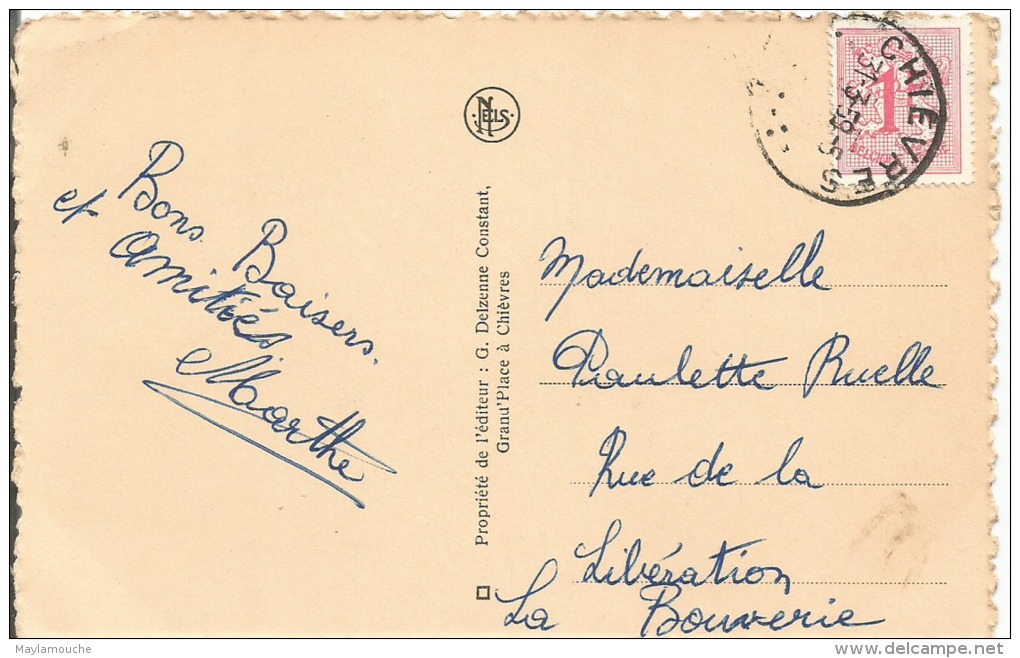 Bons Baisers.
et Amitiés.
Marthe
NELS
Propriété de l'éditeur : G. Delzenne Constant,
Granu'Place à Chièvres
CHIEVRES
1
Mademoiselle
Paulette Ruelle
Rue de la
Libération
La Bouverie
Maylamouche
delcampe.net